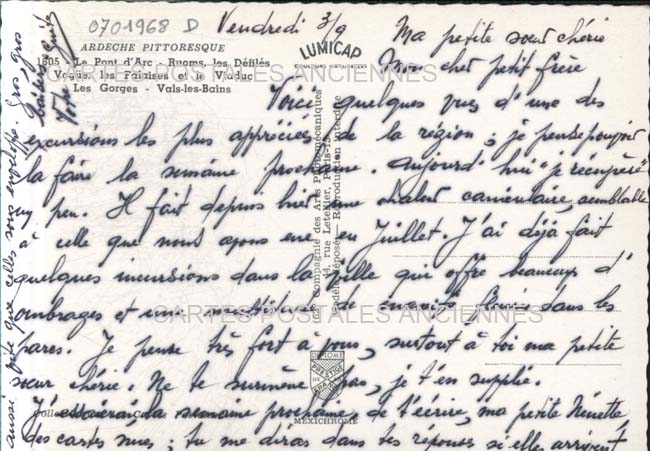 0701968 D Vendredi 3/9
ARDECHE PITTORESQUE
1605 - Le Pont d'Arc - Ruoms, les Défilés
Vogüé, les Falaises et le Viaduc
Les Gorges - Vals-les-Bains
LUMICAP
Ma petite sœur chérie
Mon cher petit frère
Voici quelques vues d'une des
excursions les plus appréciées de la région ; je pense pouvoir
la faire la semaine prochaine. Aujourd'hui "je récupère"
un peu. Il fait depuis hier une chaleur caniculaire, semblable
à celle que nous avons eue en Juillet. J'ai déjà fait
quelques incursions dans la ville qui offre beaucoup d'
ombrages et une multitude de massifs fleuris dans les
parcs. Je pense très fort à vous, surtout à toi ma petite
sœur chérie. Ne te surmène pas, je t'en supplie.
J'essaierai, la semaine prochaine, de t'écrire, ma petite Nénette,
des cartes nues ; tu me diras dans tes réponses si elles arrivent
aussi vite que celles sous enveloppe. Gros, gros
baisers
Votre
Compagnie des Arts Photomécaniques
44, rue Letellier, Paris-15
Modèle déposé - Reproduction interdite
PRESTIGE
MEXICHROME
CARTES POSTALES ANCIENNES
CARTES POSTALES ANCIENNES